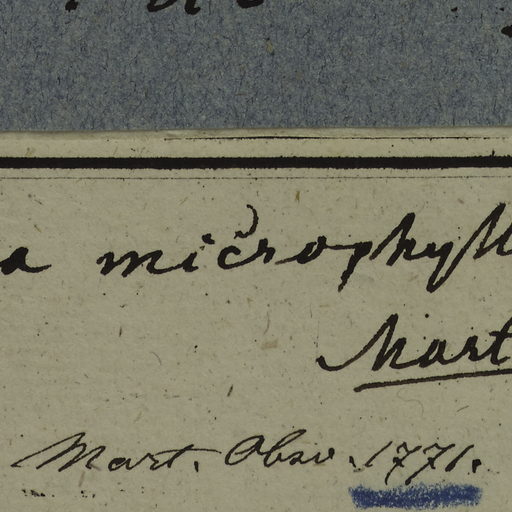 a microphyll
Mart
Mart. Obsv. 1771.